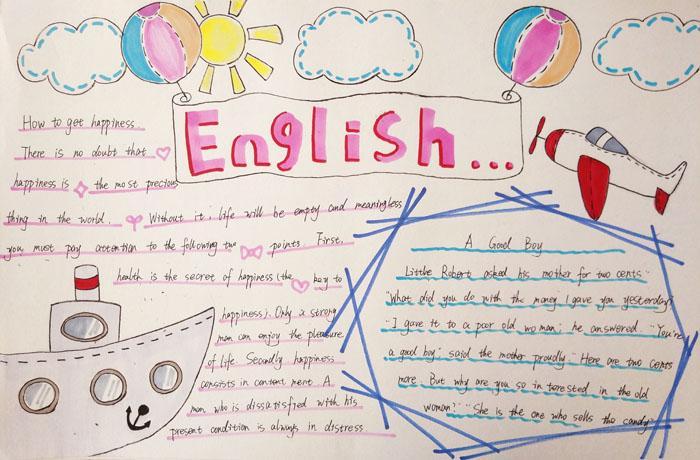 English...
How to get happiness.
There is no doubt that
happiness is the most precious
thing in the world. Without it, life will be empty and meaningless
you must pay attention to the following two points. First,
health is the secret of happiness (the key to
happiness). Only a strong
man can enjoy the pleasure
of life. Secondly happiness
consists in content ment. A
man who is dissatisfied with his
present condition is always in distress
A Good Boy
Little Robert asked his mother for two cents.
"What did you do with the money I gave you yesterday?"
"I gave it to a poor old woman," he answered. "You're
a good boy," said the mother proudly. "Here are two cents
more. But why are you so in terested in the old
woman?" "She is the one who sells the candy."